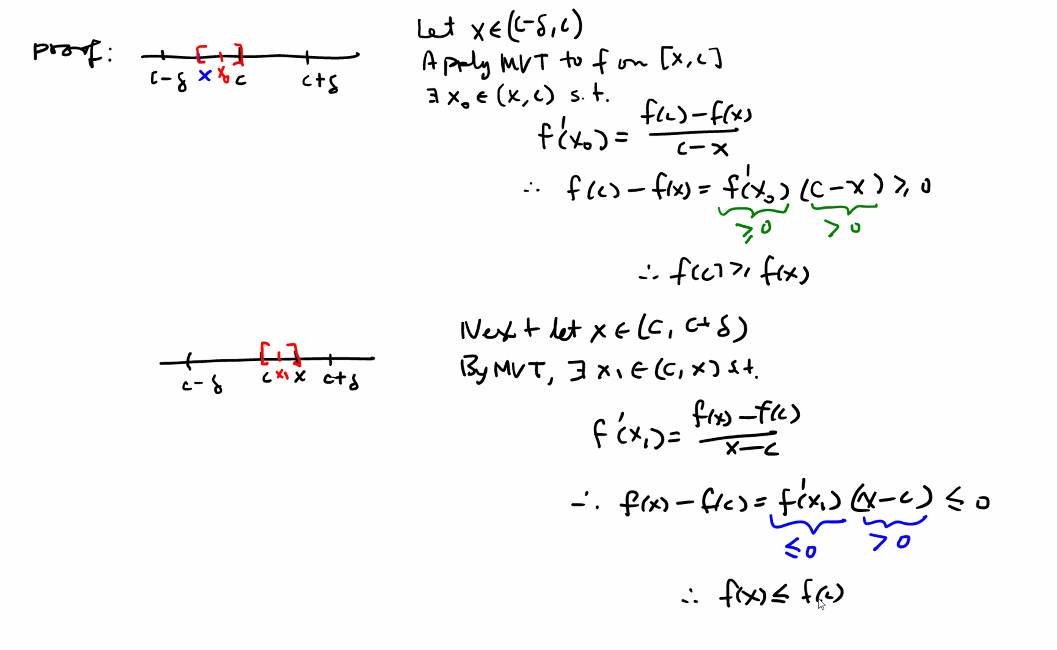 proof:
c-δ x x₀ c c+δ
Let x∈(c-δ, c)
Apply MVT to f on [x, c]
∃ x₀ ∈ (x, c) s.t.
f'(x₀) = (f(c)-f(x))/(c-x)
∴ f(c)-f(x) = f'(x₀) (c-x) ≥ 0
≥0 >0
∴ f(c) ≥ f(x)
Next let x∈(c, c+δ)
By MVT, ∃ x₁ ∈ (c, x) s.t.
c-δ c x₁ x c+δ
f'(x₁) = (f(x)-f(c))/(x-c)
∴ f(x)-f(c) = f'(x₁) (x-c) ≤ 0
≤0 >0
∴ f(x) ≤ f(c)